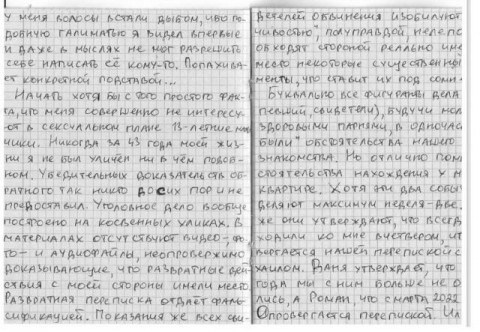 у меня волосы встали дыбом, ибо по-
добную галиматью я видел впервые
и даже в мыслях не мог разрешить
себе написать её кому-то. Попахива-
ет конкретной подставой...
Начать хотя бы с того простого фак-
та, что меня совершенно не интересу-
ют в сексуальном плане 13-летние маль-
чики. Никогда за 43 года моей жиз-
ни я не был уличён ни в чём подоб-
ном. Убедительных доказательств об-
ратного так никто до сих пор и не
предоставил. Уголовное дело вообще
построено на косвенных уликах. В
материалах отсутствуют видео-, фо-
то- и аудиофайлы, неопровержимо
доказывающие, что развратные дей-
ствия с моей стороны имели место.
Развратная переписка отдаёт фаль-
сификацией. Показания же всех сви-
детелей обвинения изобилуют
чивостью", полуправдой, нелепо
обходят стороной реально име
место некоторые существенны
менты, что ставит их под сомн
Буквально все фигуранты дела
певший, свидетели), будучи мол
здоровыми парнями, в одночась
были" обстоятельства нашего
знакомства. Но отлично помн
стоятельства нахождения у м
квартире. Хотя эти два собы
деляют максимум неделя-две.
же они утверждают, что всегд
ходили ко мне вчетвером, чт
вергается нашей перепиской с
хаилом. Ваня утверждает, что
года мы с ним больше не о
лись, а Роман, что с марта 2022
опровергается перепиской.